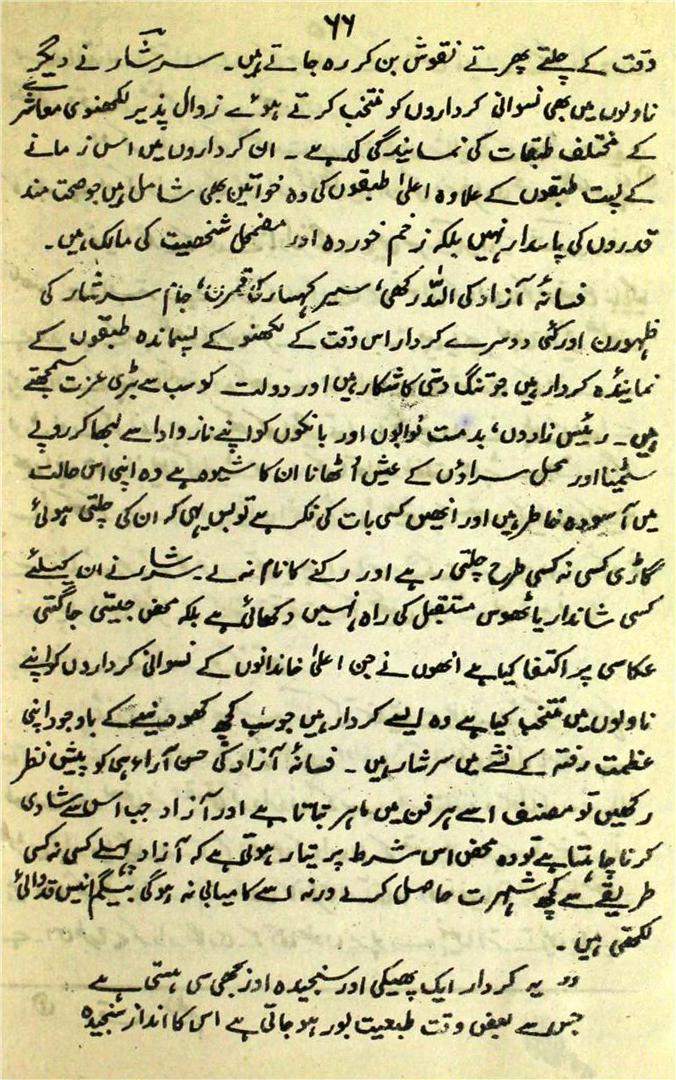 ۶۶
وقت کے چلتے پھرتے نقوش بن کر رہ جاتے ہیں۔ سرشار نے دیگر
ناولوں میں بھی نسوانی کرداروں کو منتخب کرتے ہوئے زوال پذیر لکھنوی معاشرے
کے مختلف طبقات کی نمائندگی کی ہے۔ ان کرداروں میں اس زمانے
کے پست طبقوں کے علاوہ اعلیٰ طبقوں کی وہ خواتین بھی شامل ہیں جو صحت مند
قدروں کی پاسدار نہیں بلکہ زخم خوردہ اور مضمحل شخصیت کی مالک ہیں۔
فسانۂ آزاد کی اللہ رکھی، سیر کہسار کی قمرن، جام سرشار کی
ظہورن اور کئی دوسرے کردار اس وقت کے لکھنو کے پسماندہ طبقوں کے
نمایندہ کردار ہیں جو تنگ دستی کا شکار ہیں اور دولت کو سب سے بڑی عزت سمجھتے
ہیں۔ رئیس زادوں، بدمست نوابوں اور بانکوں کو اپنے ناز و ادا سے لبھا کر روپے
سمٹینا اور محل سراؤں کے عیش اُٹھانا ان کا شیوہ ہے وہ اپنی اس حالت
میں آسودہ خاطر ہیں اور انھیں کسی بات کی فکر ہے تو بس یہی کہ ان کی چلتی ہوئی
گاڑی کسی نہ کسی طرح چلتی رہے اور رکنے کا نام نہ لے۔ سرشار نے ان کیلئے
کسی شاندار یا ٹھوس مستقبل کی راہ نہیں دکھائی ہے بلکہ محض جیتی جاگتی
عکاسی پر اکتفا کیا ہے انھوں نے جن اعلیٰ خاندانوں کے نسوانی کرداروں کو اپنے
ناولوں میں منتخب کیا ہے وہ ایسے کردار ہیں جو سب کچھ کھو دینے کے باوجود اپنی
عظمت رفتہ کے نشے میں سرشار ہیں۔ فسانۂ آزاد کی حسن آراء ہی کو پیش نظر
رکھیں تو مصنف اسے ہر فن میں ماہر بتاتا ہے اور آزاد جب اس سے شادی
کرنا چاہتا ہے تو وہ محض اس شرط پر تیار ہوتی ہے کہ آزاد پہلے کسی نہ کسی
طریقے سے کچھ شہرت حاصل کرلے ورنہ اسے کامیابی نہ ہوگی بیگم انیس قدوائی
لکھتی ہیں۔
” یہ کردار ایک پھیکی اور سنجیدہ اور بجھی سی ہستی ہے
جس سے بعض وقت طبعیت بور ہو جاتی ہے اس کا انداز سنجیدہ